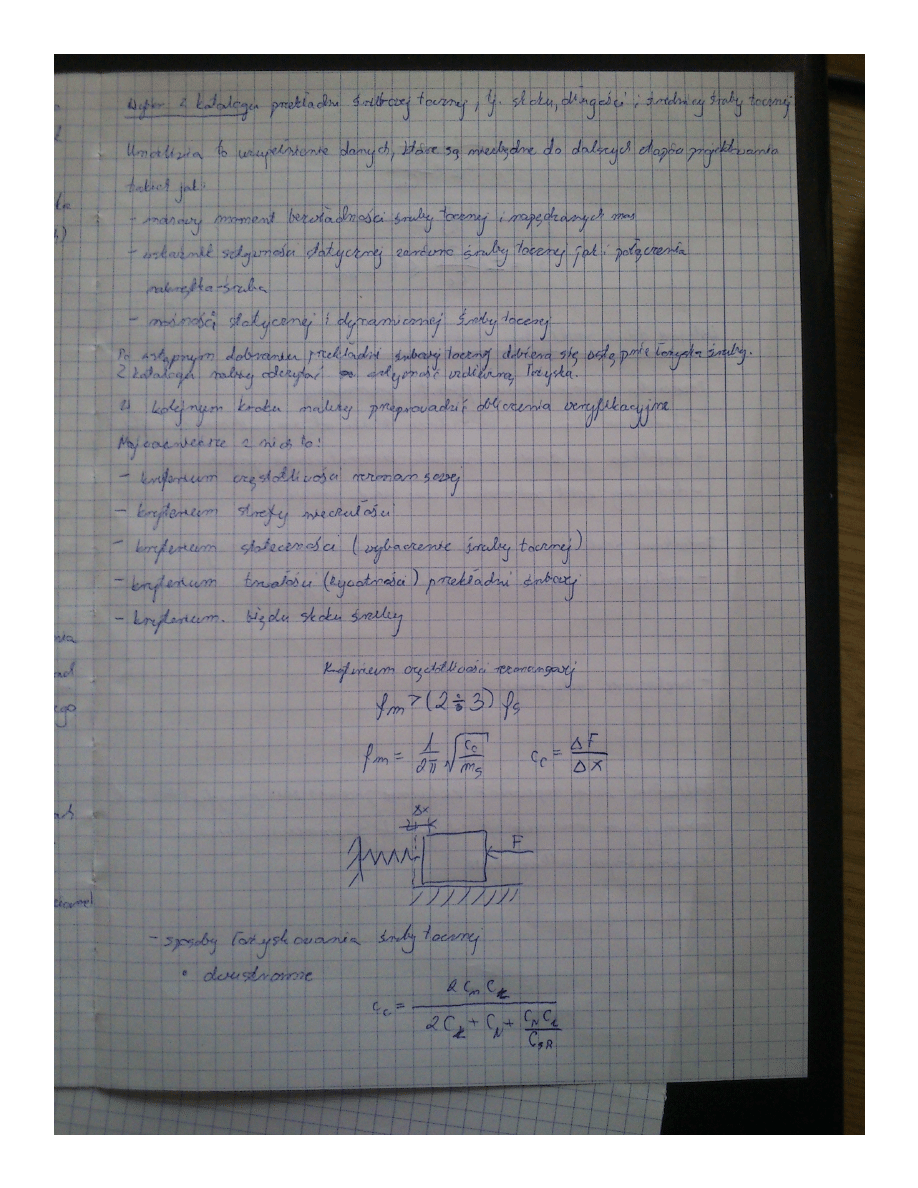 Wybór z katalogu przekładni śrubowej tocznej, tj. skoku, długości i średnicy śruby tocznej
Umożliwia to uzupełnienie danych, które są niezbędne do dalszych etapów projektowania
takich jak:
- masowy moment bezwładności śruby tocznej i napędzanych mas
- wskaźnik sztywności statycznej zarówno śruby tocznej jak i połączenia
nakrętka-śruba
- nośności statycznej i dynamicznej śruby tocznej
Po wstępnym dobraniu przekładni śrubowej tocznej dobiera się wstępnie łożyska śruby.
Z katalogu należy odczytać sztywność wzdłużną łożyska.
W kolejnym kroku należy przeprowadzić obliczenia weryfikacyjne
Najważniejsze z nich to:
- kryterium częstotliwości rezonansowej
- kryterium strefy nieczułości
- kryterium stateczności (wyboczenie śruby tocznej)
- kryterium trwałości (żywotności) przekładni śrubowej
- kryterium. błędu skoku śruby
Kryterium częstotliwości rezonansowej
fm > (2 ÷ 3) fs
fm = 1/2π √(cc/ms) cc = ΔF/ΔX
Δx
F
- sposoby łożyskowania śruby tocznej
• dwustronne
cc = 2 Cn CŁ / (2CŁ + CN + CN CŁ/CśR)
ego